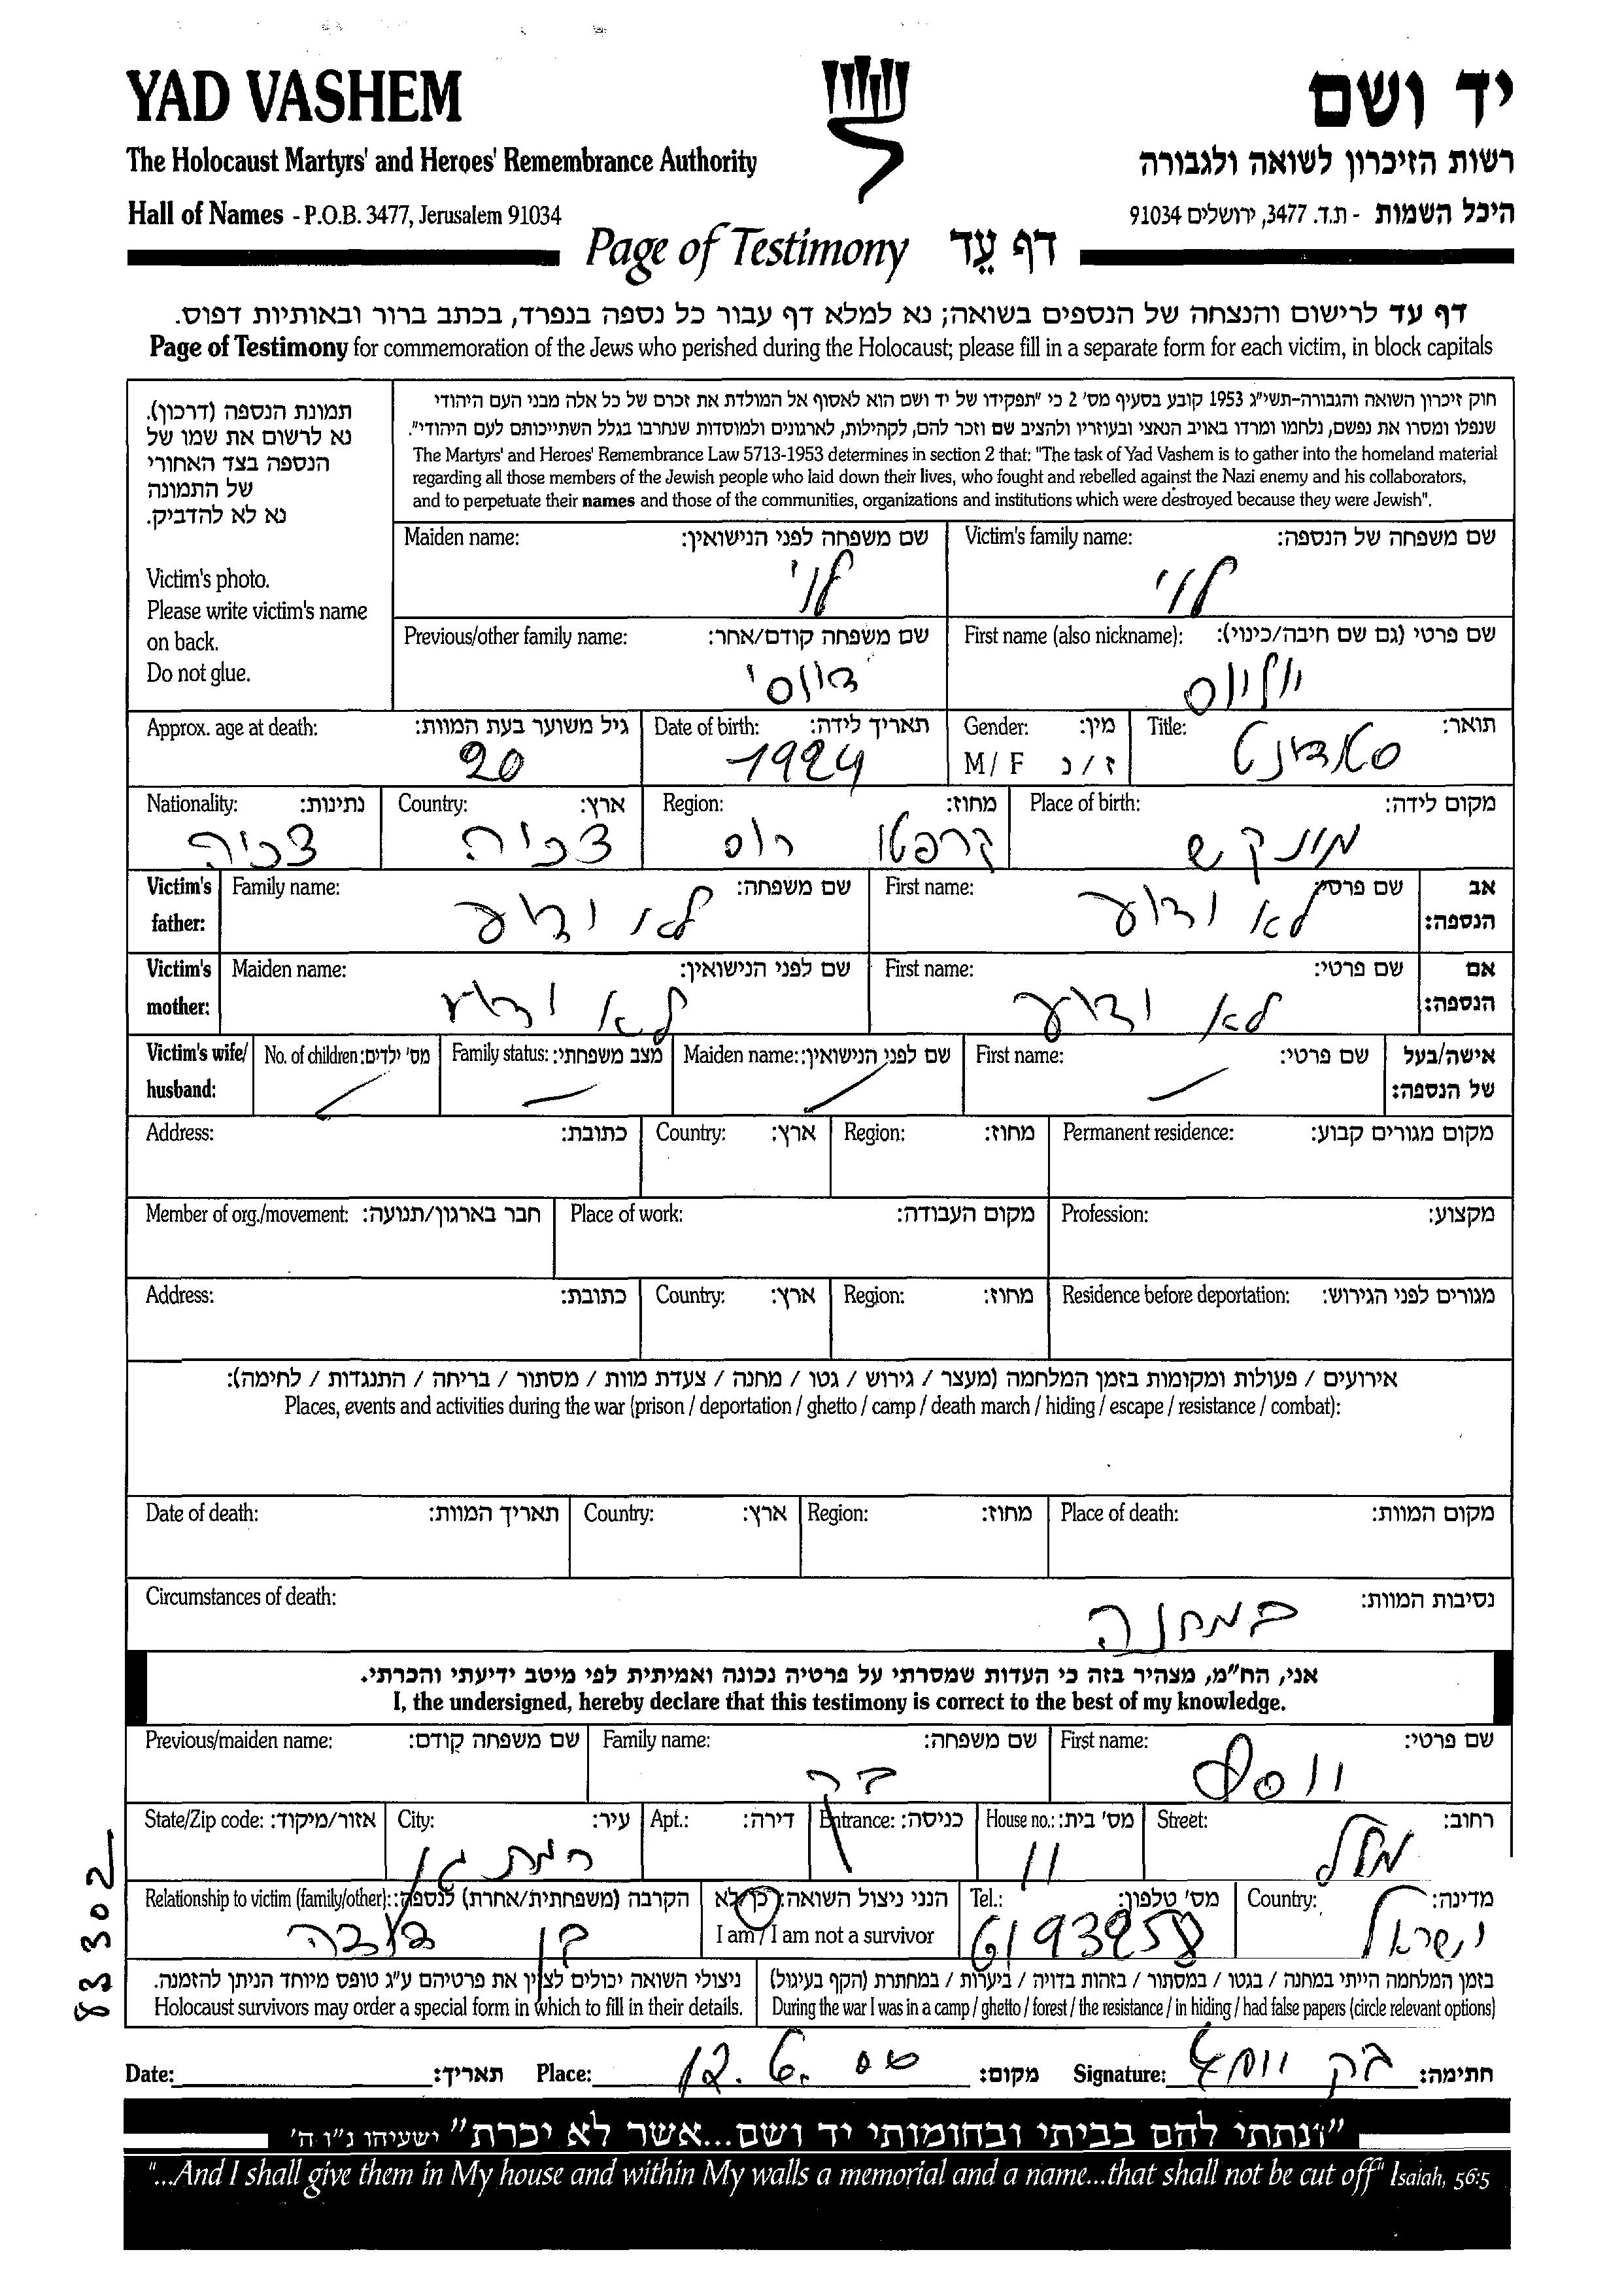 YAD VASHEM
יד ושם
The Holocaust Martyrs' and Heroes' Remembrance Authority
רשות הזיכרון לשואה ולגבורה
Hall of Names - P.O.B. 3477, Jerusalem 91034
היכל השמות - ת.ד. 3477, ירושלים 91034
Page of Testimony דף עֵד
דף עד לרישום והנצחה של הנספים בשואה; נא למלא דף עבור כל נספה בנפרד, בכתב ברור ובאותיות דפוס.
Page of Testimony for commemoration of the Jews who perished during the Holocaust; please fill in a separate form for each victim, in block capitals
תמונת הנספה (דרכון).
נא לרשום את שמו של
הנספה בצד האחורי
של התמונה
נא לא להדביק.
Victim's photo.
Please write victim's name
on back.
Do not glue.
חוק זיכרון השואה והגבורה-תשי"ג 1953 קובע בסעיף מס' 2 כי "תפקידו של יד ושם הוא לאסוף אל המולדת את זכרם של כל אלה מבני העם היהודי
שנפלו ומסרו את נפשם, נלחמו ומרדו באויב הנאצי ובעוזריו ולהציב שם וזכר להם, לקהילות, לארגונים ולמוסדות שנחרבו בגלל השתייכותם לעם היהודי".
The Martyrs' and Heroes' Remembrance Law 5713-1953 determines in section 2 that: "The task of Yad Vashem is to gather into the homeland material
regarding all those members of the Jewish people who laid down their lives, who fought and rebelled against the Nazi enemy and his collaborators,
and to perpetuate their names and those of the communities, organizations and institutions which were destroyed because they were Jewish".
Victim's family name: שם משפחה של הנספה:
לוי
Maiden name: שם משפחה לפני הנישואין:
לוי
First name (also nickname): שם פרטי (גם שם חיבה/כינוי):
יוליוס
Previous/other family name: שם משפחה קודם/אחר:
Title: תואר:
סטודנט
Gender: מין:
M / F ז / נ
Date of birth: תאריך לידה:
1924
Approx. age at death: גיל משוער בעת המוות:
20
Place of birth: מקום לידה:
מונקש
Region: מחוז:
קרפטו רוס
Country: ארץ:
צכיה
Nationality: נתינות:
צכיה
Victim's father: אב הנספה:
First name: שם פרטי:
לא ידוע
Family name: שם משפחה:
לא ידוע
Victim's mother: אם הנספה:
First name: שם פרטי:
לא ידוע
Maiden name: שם לפני הנישואין:
לא ידוע
Victim's wife/ husband: אישה/בעל של הנספה:
First name: שם פרטי:
Maiden name: שם לפני הנישואין:
Family status: מצב משפחתי:
No. of children: מס' ילדים:
Permanent residence: מקום מגורים קבוע:
Region: מחוז:
Country: ארץ:
Address: כתובת:
Profession: מקצוע:
Place of work: מקום העבודה:
Member of org./movement: חבר בארגון/תנועה:
Residence before deportation: מגורים לפני הגירוש:
Region: מחוז:
Country: ארץ:
Address: כתובת:
אירועים / פעולות ומקומות בזמן המלחמה (מעצר / גירוש / גטו / מחנה / צעדת מוות / מסתור / בריחה / התנגדות / לחימה):
Places, events and activities during the war (prison / deportation / ghetto / camp / death march / hiding / escape / resistance / combat):
Place of death: מקום המוות:
Region: מחוז:
Country: ארץ:
Date of death: תאריך המוות:
Circumstances of death: נסיבות המוות:
במחנה
אני, הח"מ, מצהיר בזה כי העדות שמסרתי על פרטיה נכונה ואמיתית לפי מיטב ידיעתי והכרתי.
I, the undersigned, hereby declare that this testimony is correct to the best of my knowledge.
First name: שם פרטי:
יוסף
Family name: שם משפחה:
בק
Previous/maiden name: שם משפחה קודם:
Street: רחוב:
House no.: מס' בית:
11
Entrance: כניסה:
Apt.: דירה:
City: עיר:
רמת גן
State/Zip code: אזור/מיקוד:
83302
Country: מדינה:
ישראל
Tel.: מס' טלפון:
6193258
הנני ניצול השואה: כן/לא
I am / I am not a survivor
Relationship to victim (family/other): הקרבה (משפחתית/אחרת) לנספה:
בן דודה
בזמן המלחמה הייתי במחנה / בגטו / במסתור / בזהות בדויה / ביערות / במחתרת (הקף בעיגול)
During the war I was in a camp / ghetto / forest / the resistance / in hiding / had false papers (circle relevant options)
ניצולי השואה יכולים לציין את פרטיהם ע"ג טופס מיוחד הניתן להזמנה.
Holocaust survivors may order a special form in which to fill in their details.
Signature: בק יוסף חתימה:
Place: 12.6. מקום:
Date: תאריך:
"ונתתי להם בביתי ובחומותי יד ושם...אשר לא יכרת" ישעיהו נ"ו ה'
"...And I shall give them in My house and within My walls a memorial and a name...that shall not be cut off" Isaiah, 56:5